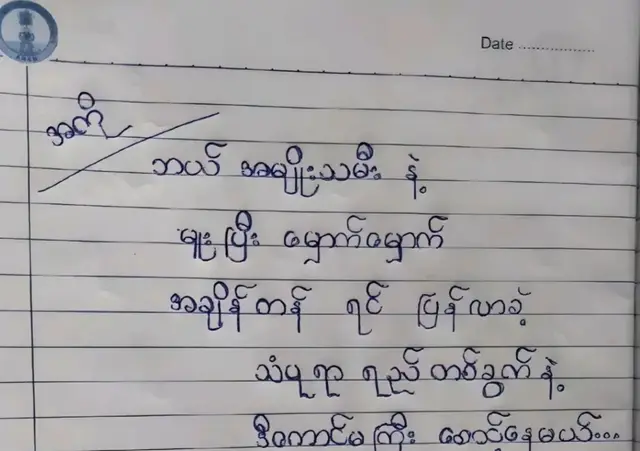 Date ....................
အကို
ဘယ် အမျိုးသမီး နဲ့
မူးပြီး မှောက်မှောက်
အချိန်တန် ရင် ပြန်လာခဲ့
သံပုရာ ရည် တစ်ခွက် နဲ့
ဒီကောင်မကြီး စောင့်နေမယ်...